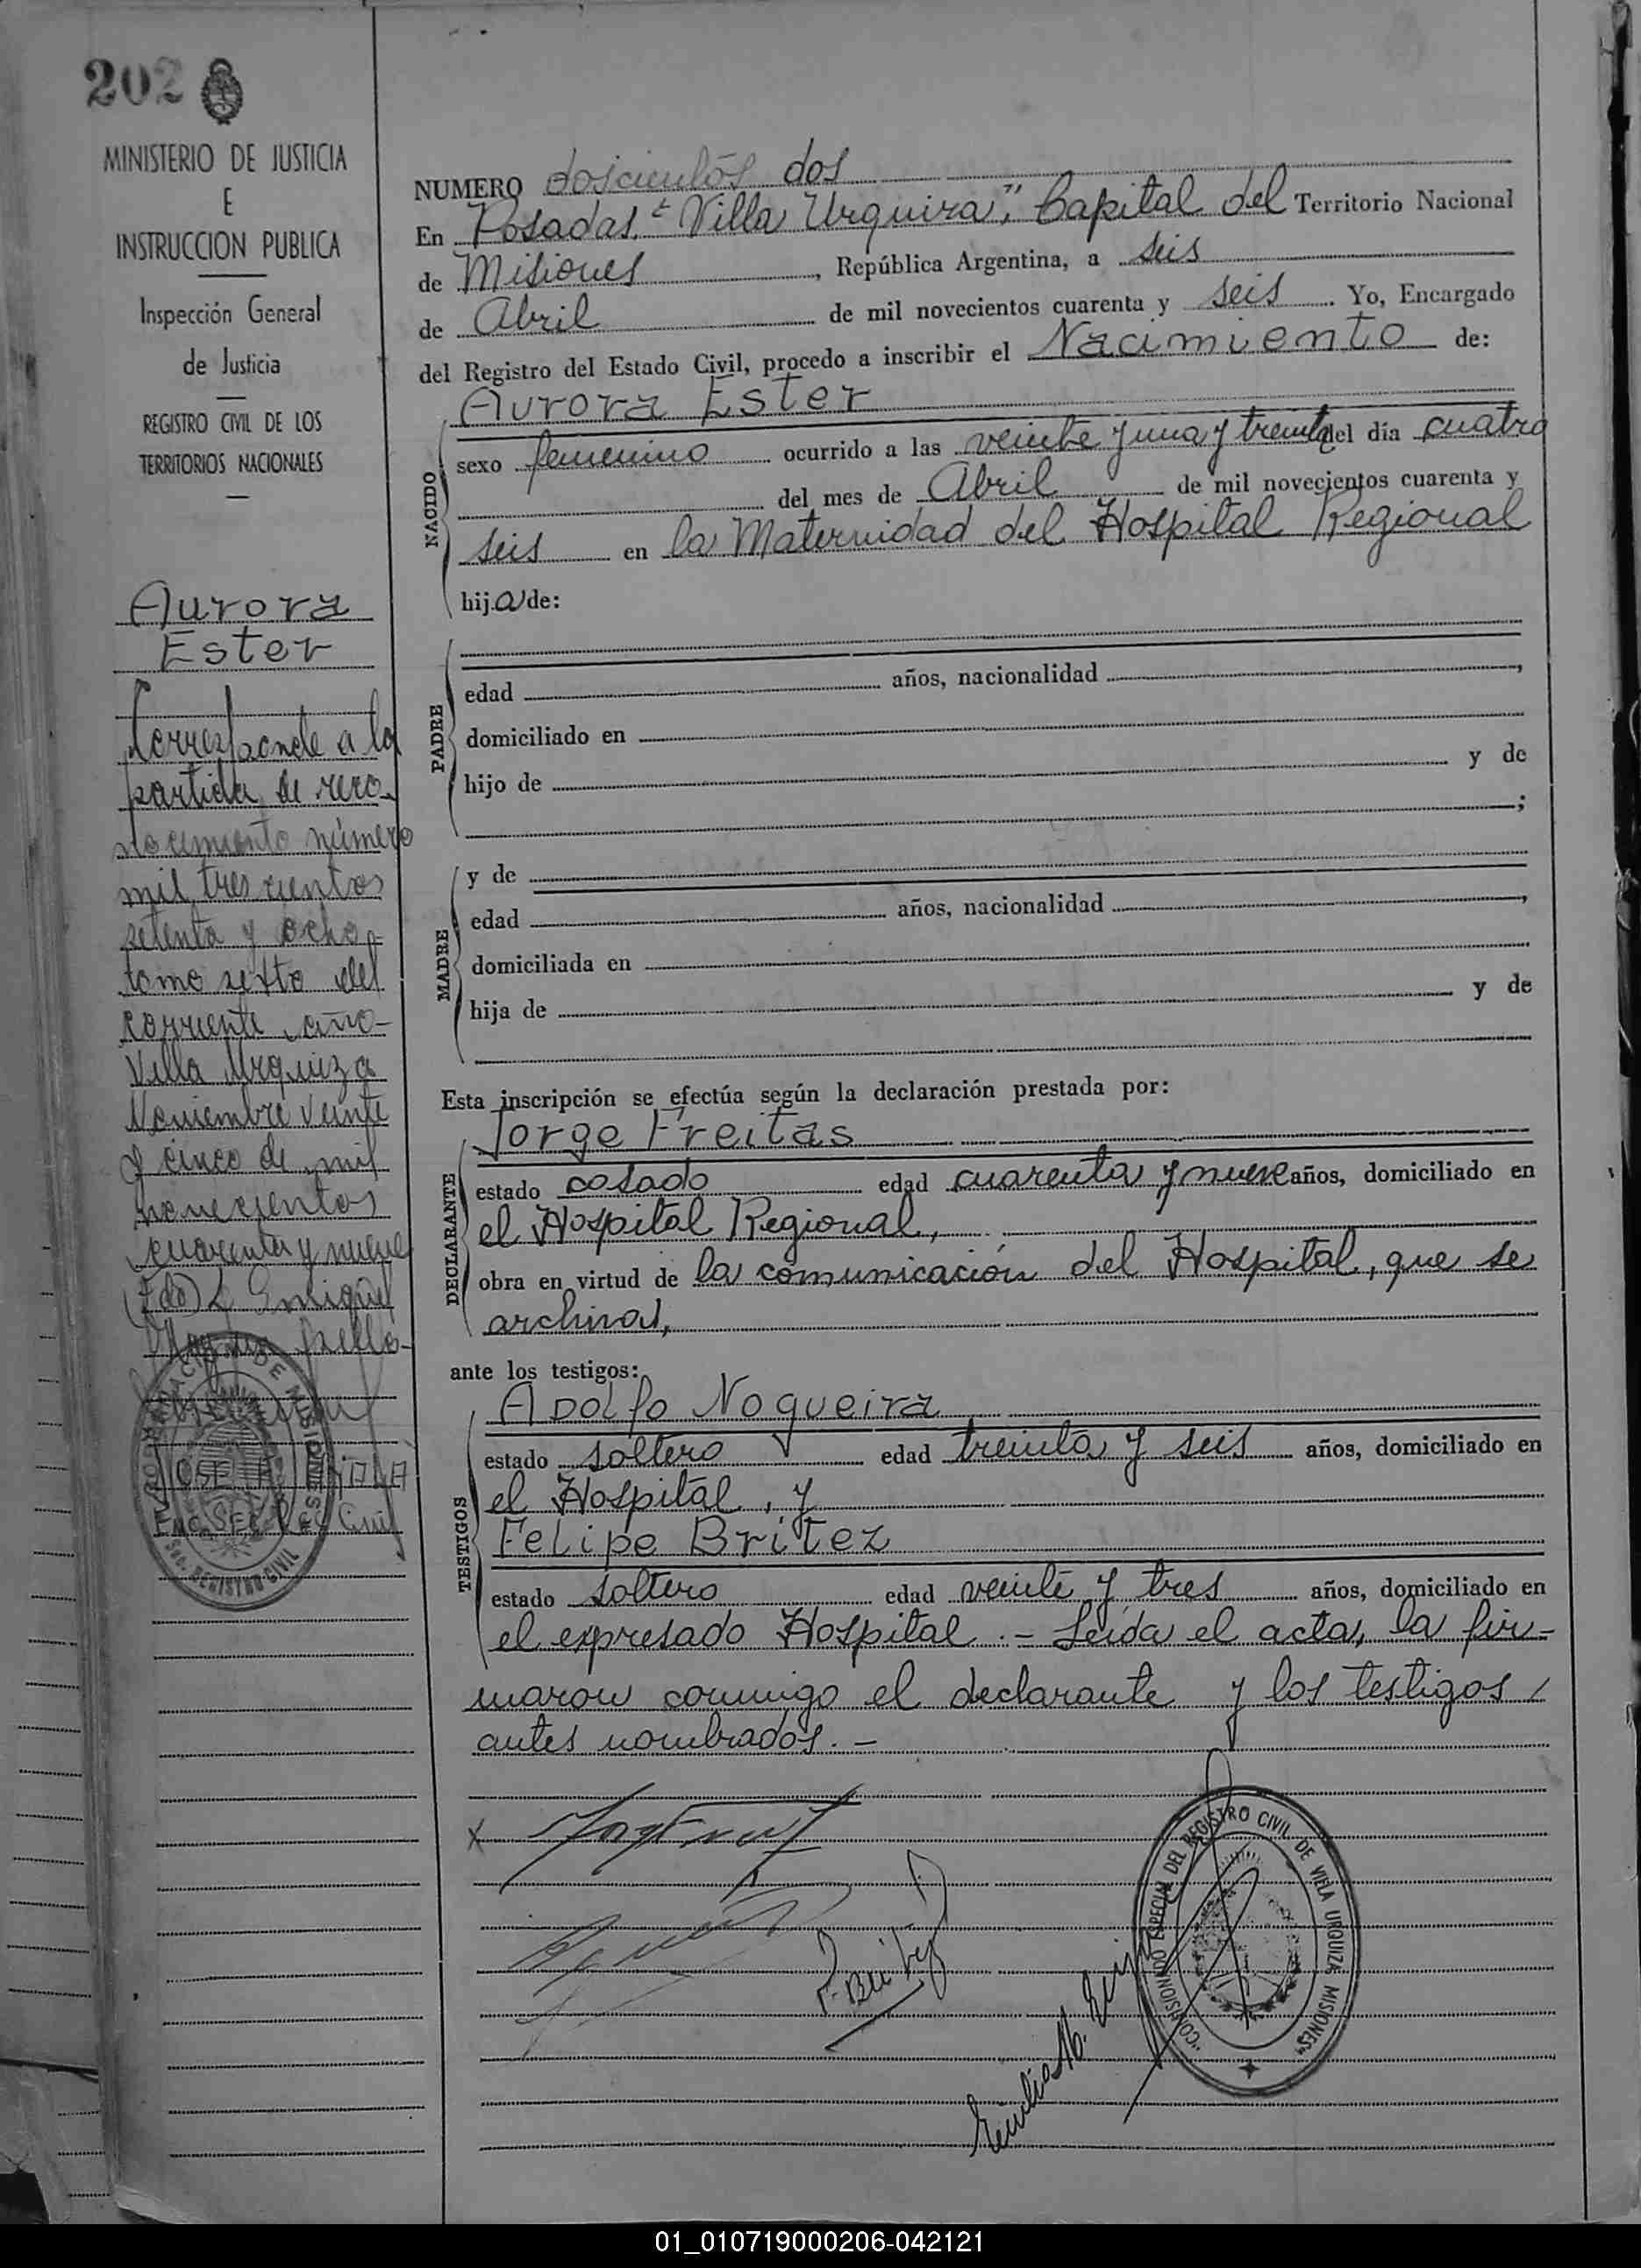 202
MINISTERIO DE JUSTICIA
E
INSTRUCCION PUBLICA
Inspección General
de Justicia
REGISTRO CIVIL DE LOS
TERRITORIOS NACIONALES
Aurora
Ester
Corresponde a la
partida de reco-
nocimiento número
mil trescientos
setenta y ocho
tomo sexto del
corriente año-
Villa Urquiza
Noviembre veinte
y cinco de mil
novecientos
cuarenta y nueve
(Fdo)
REGISTRO CIVIL
NUMERO doscientos dos
En Posadas, "Villa Urquiza", Capital del Territorio Nacional
de Misiones, República Argentina, a seis
de Abril de mil novecientos cuarenta y seis. Yo, Encargado
del Registro del Estado Civil, procedo a inscribir el Nacimiento de:
Aurora Ester
NACIDO
sexo femenino ocurrido a las veinte y una y treinta del día cuatro
del mes de Abril de mil novecientos cuarenta y
seis en la Maternidad del Hospital Regional
hija de:
PADRE
edad años, nacionalidad ,
domiciliado en
hijo de y de
;
MADRE
y de
edad años, nacionalidad ,
domiciliada en
hija de y de
Esta inscripción se efectúa según la declaración prestada por:
Jorge Freitas
DECLARANTE
estado casado edad cuarenta y nueve años, domiciliado en
el Hospital Regional,
obra en virtud de la comunicación del Hospital, que se
archiva,
ante los testigos:
Adolfo Nogueira
TESTIGOS
estado soltero edad treinta y seis años, domiciliado en
el Hospital, y
Felipe Britez
estado soltero edad veinte y tres años, domiciliado en
el expresado Hospital.- Leída el acta, la fir-
maron conmigo el declarante y los testigos
antes nombrados.-
F. Britez
"COMISIONADO ESPECIAL DEL REGISTRO CIVIL DE VILLA URQUIZA MISIONES"
01_010719000206-042121